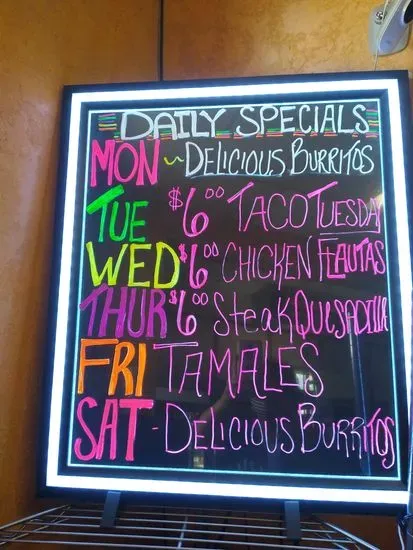 DAILY SPECIALS
MON ~ DELICIOUS BURRITOS
TUE $6⁰⁰ TACO TUESDAY
WED $6⁰⁰ CHICKEN FLAUTAS
THUR $6⁰⁰ Steak QUESADILLA
FRI TAMALES
SAT - DELICIOUS BURRITOS